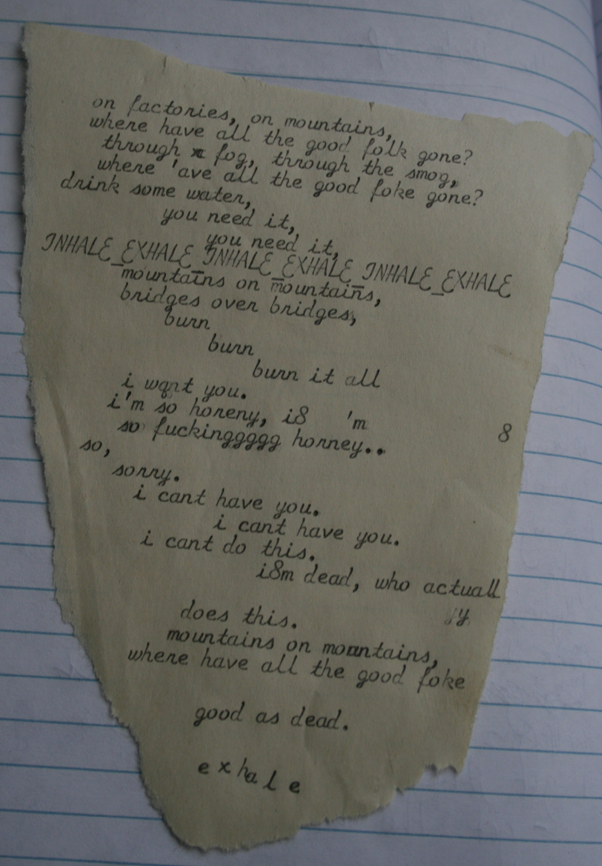 on factories, on mountains,
where have all the good folk gone?
through x fog, through the smog,
where 'ave all the good foke gone?
drink some water,
you need it,
you need it,
INHALE_EXHALE INHALE_EXHALE INHALE_EXHALE
mountains on mountains,
bridges over bridges,
burn
burn
burn it all
i want you.
i'm so horeny, i8 'm 8
so fuckinggggg horney..
so,
sorry.
i cant have you.
i cant have you.
i cant do this.
i8m dead, who actuall
y
does this.
mountains on mountains,
where have all the good foke
good as dead.
exhale